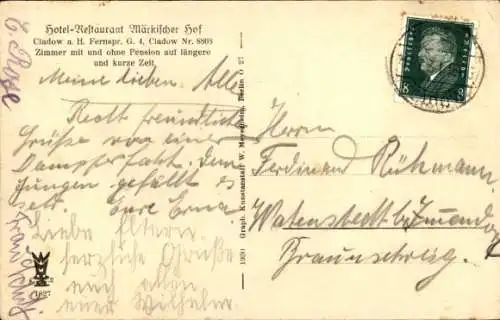 Hotel-Restaurant Märkischer Hof
Cladow a. H. Fernspr. G. 4, Cladow Nr. 8808
Zimmer mit und ohne Pension auf längere
und kurze Zeit
Meine Lieben. Alle
Recht freundliche
Grüße von einer
Dampferfahrt. Dem
Jungen gefällt es
sehr. Eure Erna
Liebe Eltern
herzliche Grüße
euch allen
euer Wilhelm.
1627
1930 Graph. Kunstanstalt W. Meyerheim, Berlin O 27
8 8
Herrn
Ferdinand Rühmann
Watenstedt b/
Braunschweig.